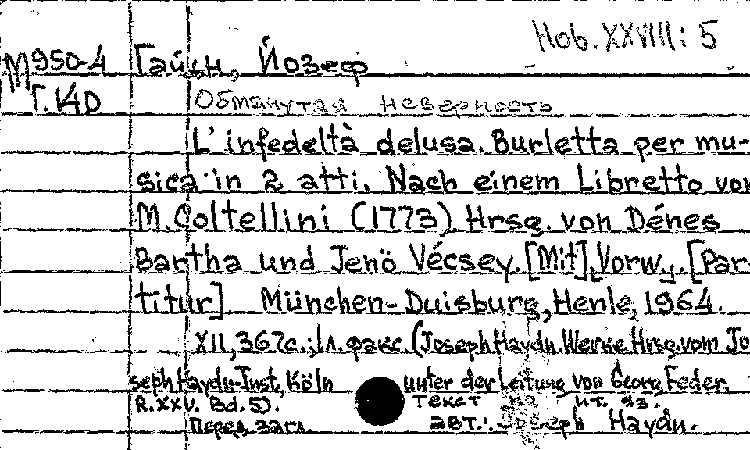 Hob. XXVIII: 5
М950-4 Гайдн, Йозеф
Г.140 Обманутая неверность
L'infedeltà delusa. Burletta per mu-
sica in 2 atti. Nach einem Libretto von
M. Coltellini (1773). Hrsg. von Dénes
Bartha und Jenö Vécsey. [Mit] Vorw. [Par-
titur]. München-Duisburg, Henle, 1964.
XII, 367с.; 1л. факс. (Joseph Haydn. Werke. Hrsg. vom Jo-
seph Haydn-Inst., Köln unter der Leitung von Georg Feder.
R. XXV. Bd. 5). Текст на ит. яз.
Перед загл. авт.: Joseph Haydn.